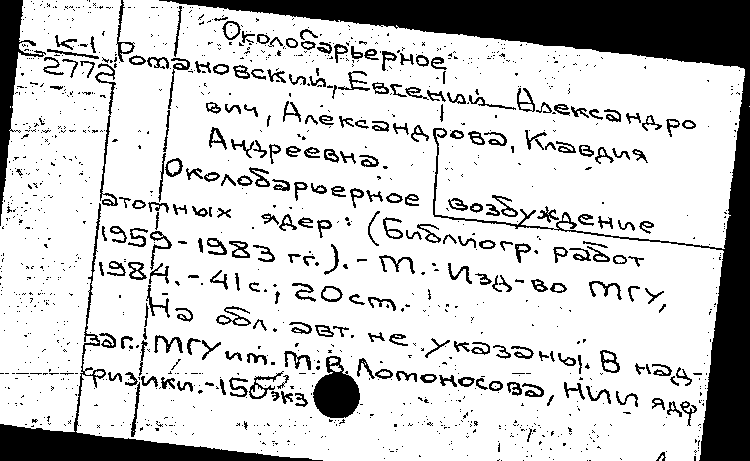 Околобарьерное
С К-1 Романовский, Евгений Александро
2772
вич, Александрова, Клавдия
Андреевна.
Околобарьерное возбуждение
атомных ядер: (Библиогр. работ
1959-1983 гг.). - М.: Изд-во МГУ,
1984. - 41 с.; 20 см.
На обл. авт. не указаны. В над-
заг.: МГУ им. М.В. Ломоносова, НИИ ядер
физики. - 150 экз